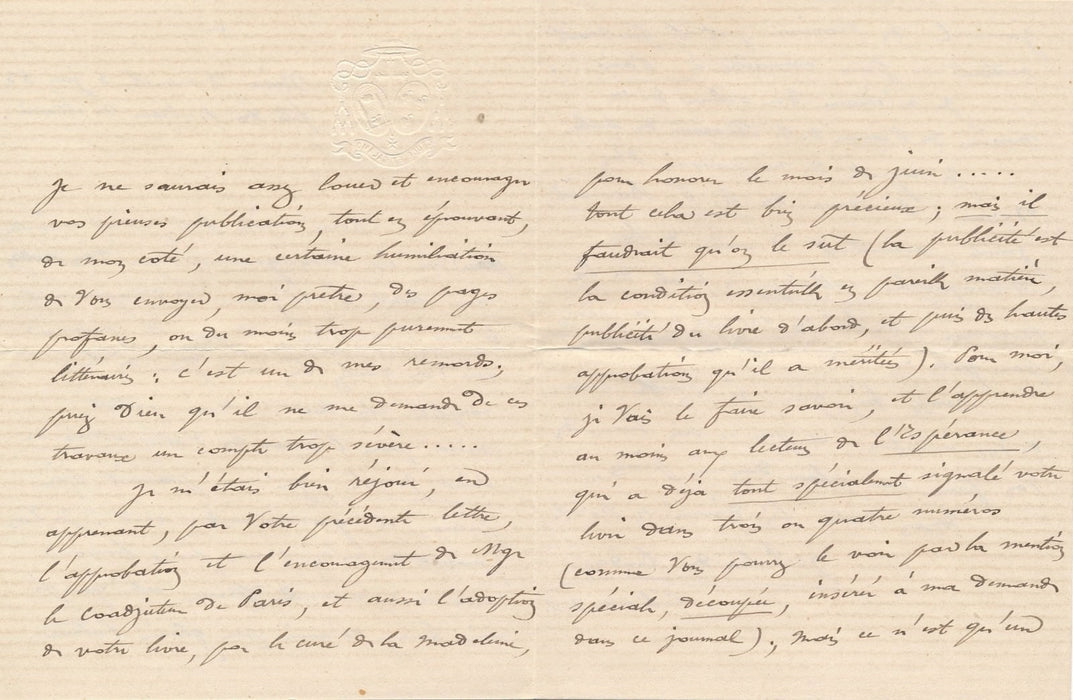 Je ne saurais assez louer et encourager
vos pieuses publications, tout en éprouvant,
de mon coté, une certaine humiliation
de Vous envoyer, moi prêtre, des pages
profanes, ou du moins trop purement
littéraires : c'est un de mes remords ;
priez Dieu qu'il ne me demande de ces
travaux un compte trop sévère .....
Je m'étais bien réjoui, en
apprenant, par Votre précédente lettre,
l'approbation et l'encouragement de Mgr
le coadjuteur de Paris, et aussi l'adoption
de votre livre, par le curé de la Madeleine,
pour honorer le mois de juin .....
tout cela est bien précieux ; mais il
faudrait qu'on le sût (la publicité est
la condition essentielle en pareille matière,
publicité du livre d'abord, et puis des hautes
approbations qu'il a méritées). Pour moi,
je Vais le faire savoir, et l'apprendre
au moins aux lecteurs de l'Espérance,
qui a déjà tout spécialement signalé votre
livre dans trois ou quatre numéros
(comme Vous pourrez le voir par la mention
spéciale, découpée, insérée à ma demande
dans ce journal) ; mais ce n'est qu'un